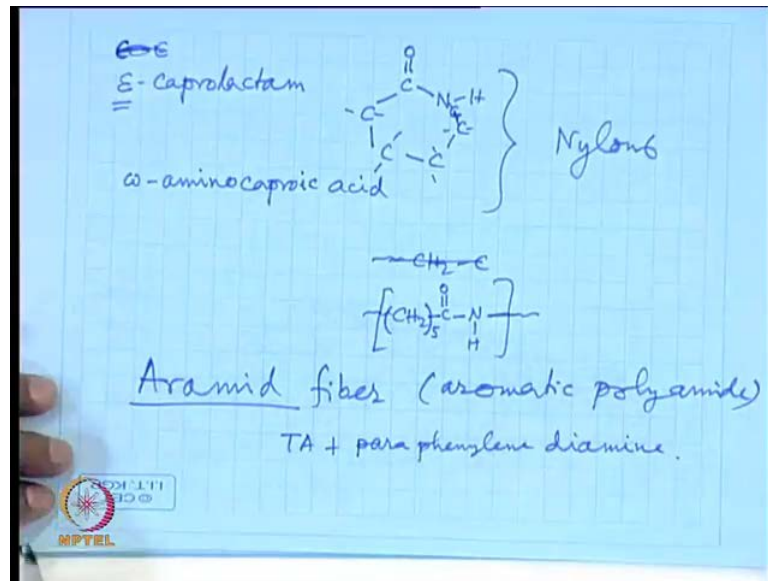 ε-Caprolactam
ω-aminocaproic acid
O
||
C
N-H
C
C
C
C
C
Nylon6
-[(CH2)5-C-N-]-
O
H
Aramid fiber (aromatic polyamide)
TA + para phenylene diamine.
© CET
I.I.T. KGP
NPTEL